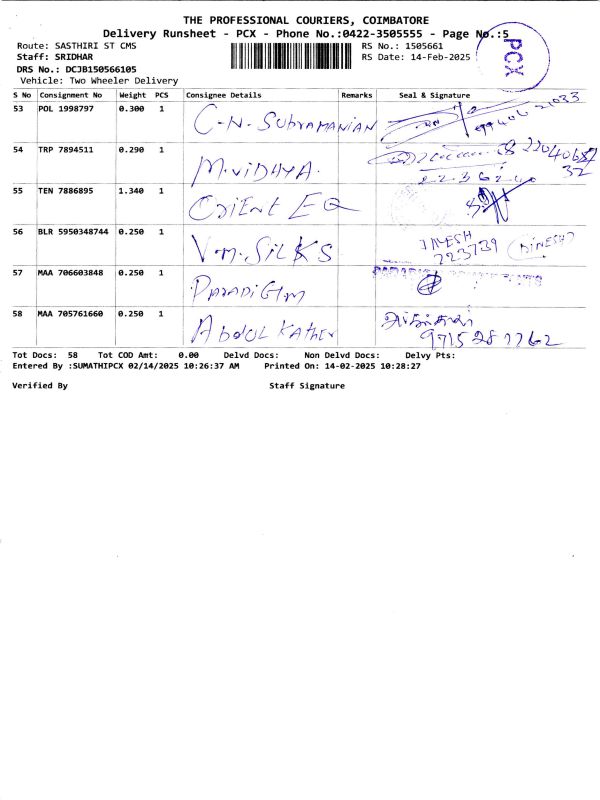 THE PROFESSIONAL COURIERS, COIMBATORE
Delivery Runsheet - PCX - Phone No.:0422-3505555 - Page No.:5
Route: SASTHIRI ST CMS
RS No.: 1505661
Staff: SRIDHAR
RS Date: 14-Feb-2025
DRS No.: DCJB150566105
Vehicle: Two Wheeler Delivery
PCX
S No Consignment No Weight PCS Consignee Details Remarks Seal & Signature
53 POL 1998797 0.300 1 C-N-SUbrAMANIAN
54 TRP 7894511 0.290 1 M.VIDHYA.
55 TEN 7886895 1.340 1 OrIENt EQ
56 BLR 5950348744 0.250 1 V.M.SILKS DINESH
223739
57 MAA 706603848 0.250 1 PArADIGm
58 MAA 705761660 0.250 1 AbdUL KAther
9715287762
Tot Docs: 58 Tot COD Amt: 0.00 Delvd Docs: Non Delvd Docs: Delvy Pts:
Entered By :SUMATHIPCX 02/14/2025 10:26:37 AM Printed On: 14-02-2025 10:28:27
Verified By Staff Signature